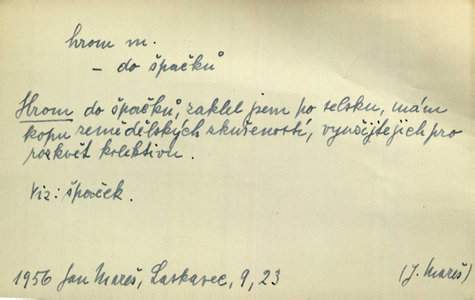 hrom m.
– do špačků
Hrom do špačků, zaklel jsem po selsku, mám
kopu zemědělských zkušeností, využijte jich pro
rozkvět kolektivu.
Viz: špaček.
1956 Jan Mareš, Laskavec, 9, 23 (J. Mareš)